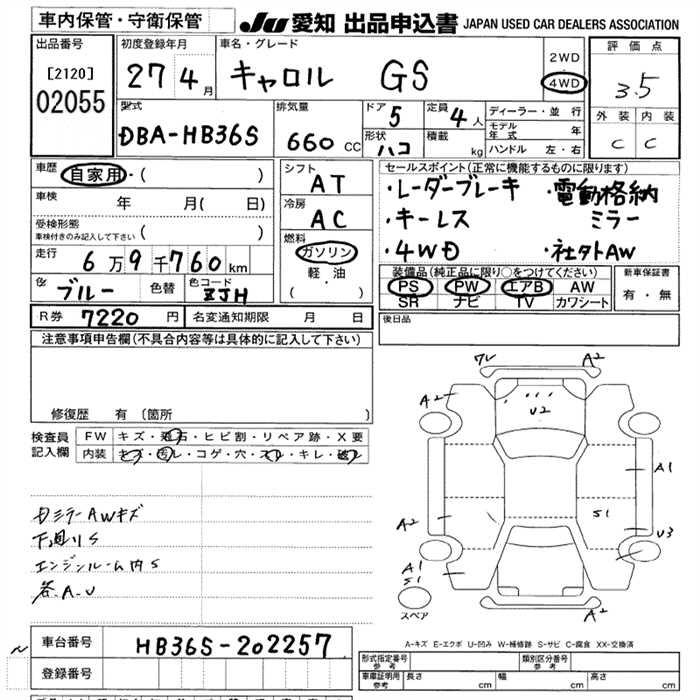 車内保管・守衛保管
JU 愛知 出品申込書 JAPAN USED CAR DEALERS ASSOCIATION
出品番号
[2120]
02055
初度登録年月
27 4月
車名・グレード
キャロル GS
2WD
4WD
評価点
3.5
外装 内装
C C
型式
DBA-HB36S
排気量
660 CC
ドア 5
形状 ハコ
定員 4人
積載 kg
ディーラー・並行
モデル年式 年
ハンドル 左・右
車歴
自家用・( )
車検 年 月( 日)
受検形態
車検付きのみ記入して下さい ( )
走行 6万9千760km
色 ブルー 色替 色コード ZJH
シフト
AT
冷房
AC
燃料
ガソリン
軽・油
( )
セールスポイント(正常に機能するものに限ります)
・レーダーブレーキ ・電動格納
・キーレス ミラー
・4WD ・社外AW
装備品(純正品に限り○をつけてください)
PS PW エアB AW
SR ナビ TV カワシート
新車保証書
有・無
R券 7220円 名変通知期限 月 日
後日品
注意事項申告欄(不具合内容等は具体的に記入して下さい)
修復歴 有 〔箇所 〕
検査員記入欄
FW キズ・飛石・ヒビ割・リペア跡・X要
内装 キズ・汚レ・コゲ・穴・スレ・キレ・破レ
ミラー AWキズ
下廻りS
エンジンルーム内S
各A.U
ワレ A2
A2 U2 A2
A1
A2 S1
U3
A1 S1
A2
スペア
A-キズ E-エクボ U-凹み W-補修跡 S-サビ C-腐食 XX-交換済
車台番号 HB36S-202257
登録番号
形式指定番号 参考
類別区分番号 参考
車庫証明用 参考 長さ cm 幅 cm 高さ cm